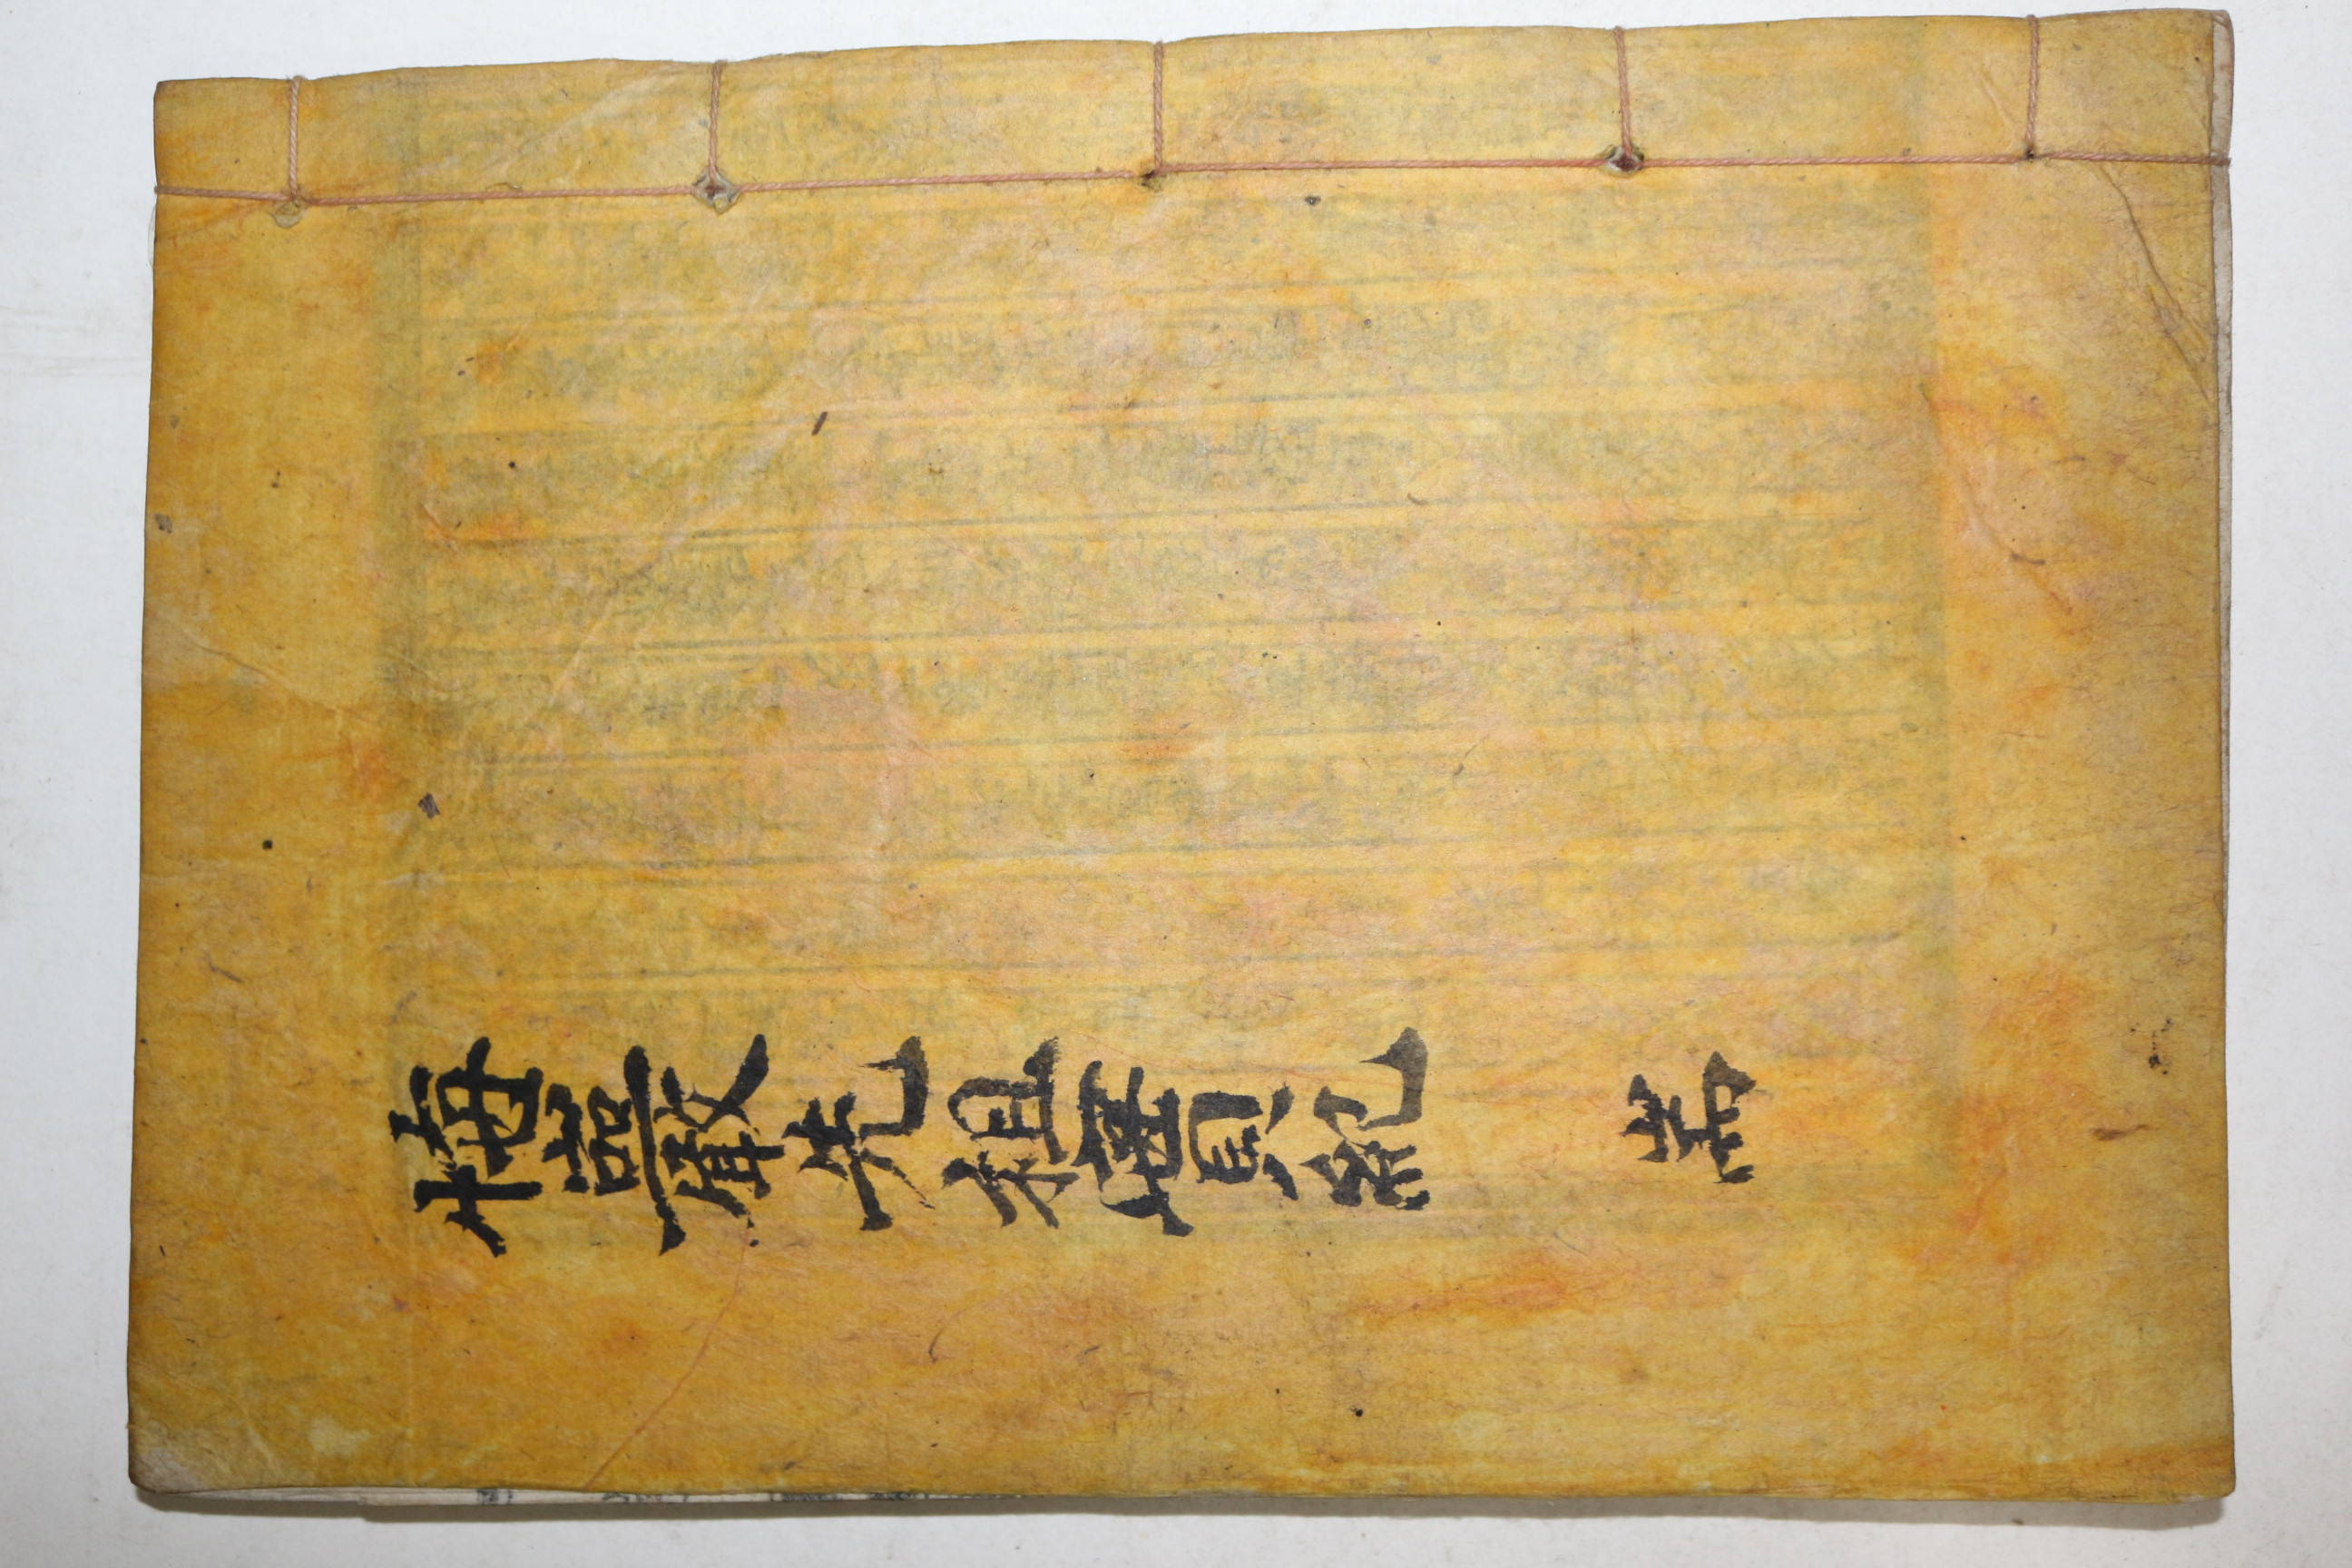 梅巖先祖實紀 單